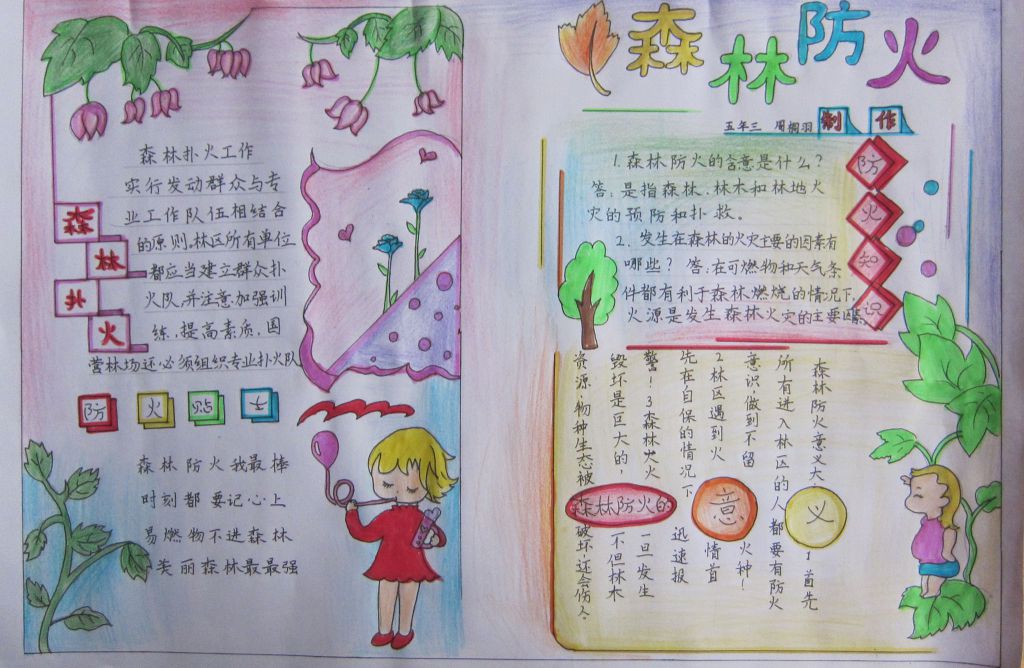 森林扑火
森林扑火工作
实行发动群众与专
业工作队伍相结合
的原则。林区所有单位
都应当建立群众扑
火队,并注意加强训
练,提高素质,国
营林场还必须组织专业扑火队
防火贴士
森林防火我最棒
时刻都要记心上
易燃物不进森林
美丽森林最最强
森林防火
五年三 周桐羽 制作
防火知识
1.森林防火的含意是什么?
答:是指森林、林木和林地火
灾的预防和扑救。
2、发生在森林的火灾主要的因素有
哪些? 答:在可燃物和天气条
件都有利于森林燃烧的情况下,
火源是发生森林火灾的主要因素
森林防火的意义
森林防火意义大,1首先
所有进入林区的人都要有防火
意识做到不留火种!
2林区遇到火情首
先在自保的情况下迅速报
警!3森林火火一旦发生
毁坏是巨大的,不但林木
资源,物种生态被破坏,还会伤人。